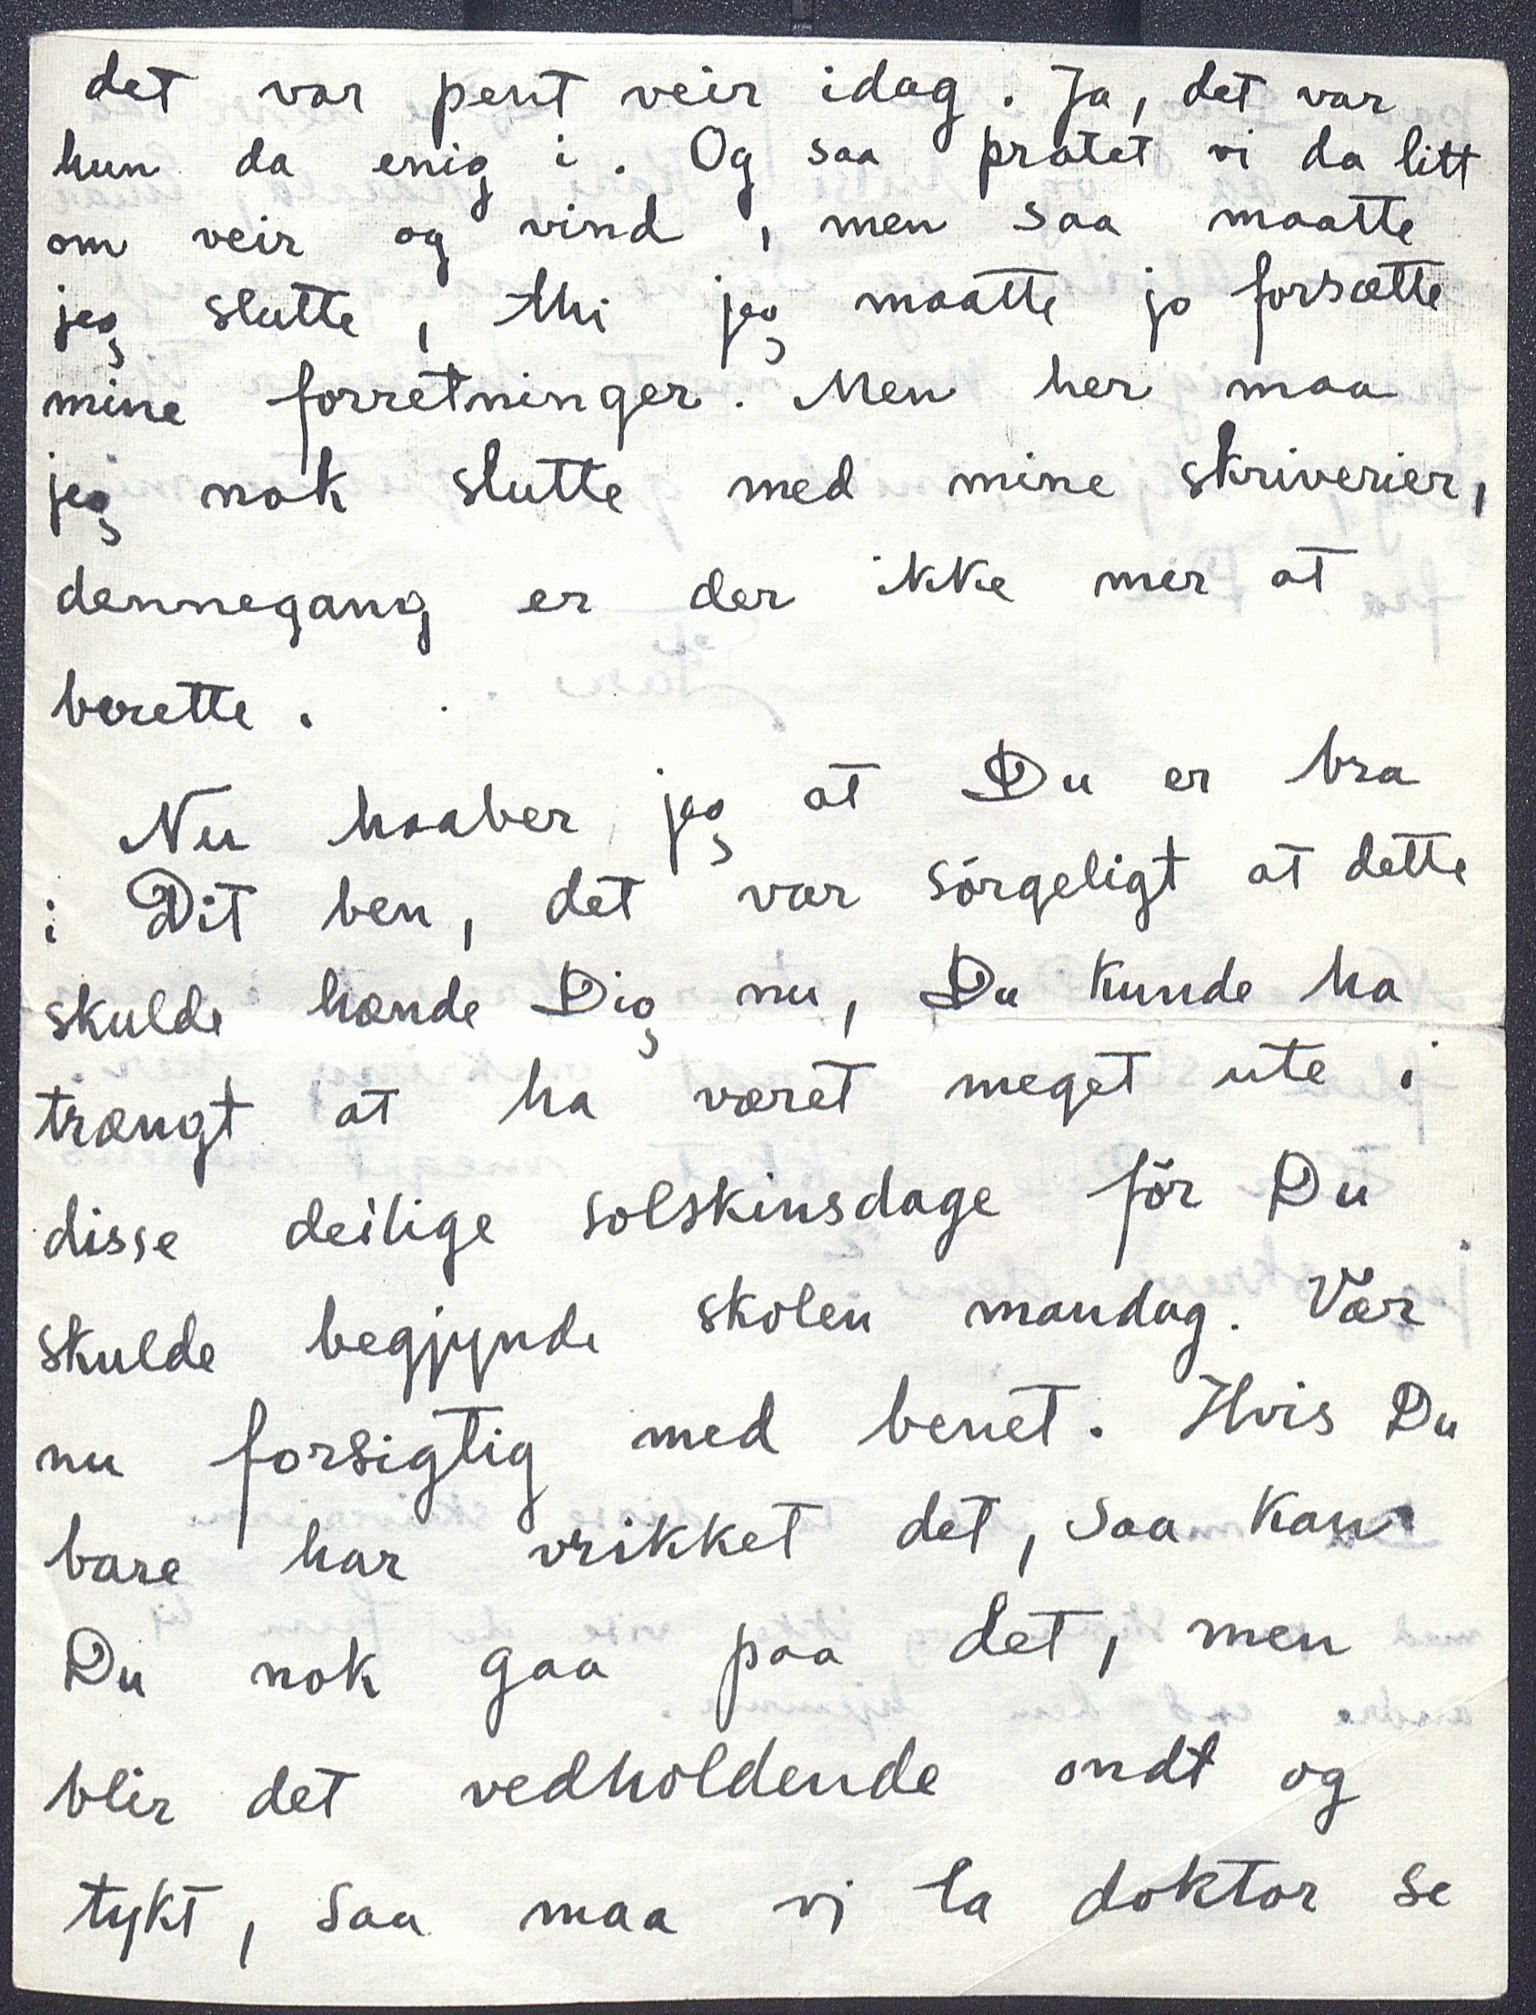 det var pent veir idag. Ja, det var
hun da enig i. Og saa pratet vi da litt
om veir og vind, men saa maatte
jeg slutte, thi jeg maatte jo forsætte
mine forretninger. Men her maa
jeg nok slutte med mine skriverier,
dennegang er der ikke mer at
berette.
Nu haaber jeg at Du er bra
i Dit ben, det var sörgeligt at dette
skulde hænde Dig nu, Du kunde ha
trængt at ha været meget ute i
disse deilige solskinsdage för Du
skulde begjynde skolen mandag. Vær
nu forsigtig med benet. Hvis Du
bare har vrikket det, saa kan
Du nok gaa paa det, men
blir det vedholdende ondt og
tykt, saa maa vi la doktor se